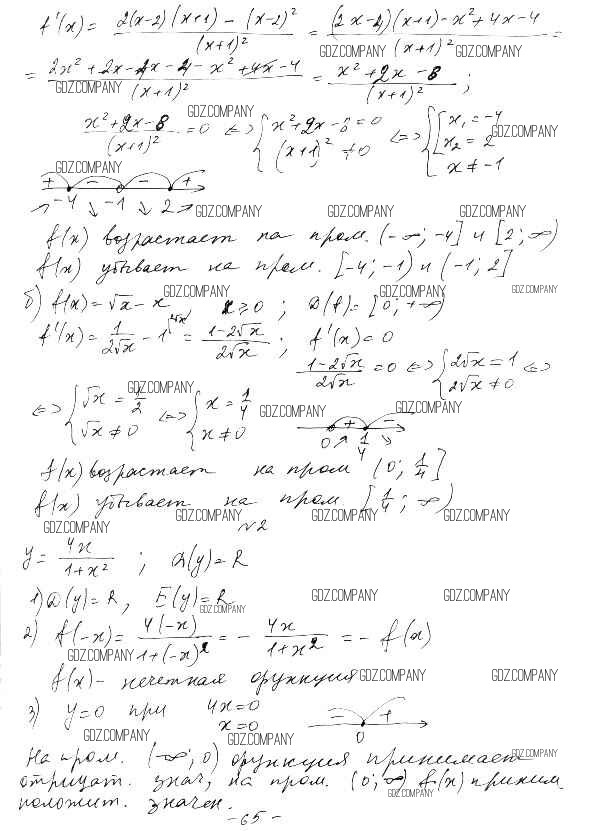 f'(x) = (2(x-2)(x+1) - (x-2)²)/(x+1)² = ((2x-4)(x+1) - x² + 4x - 4)/(x+1)² =
= (2x² + 2x - 4x - 4 - x² + 4x - 4)/(x+1)² = (x² + 2x - 8)/(x+1)² ;
(x² + 2x - 8)/(x+1)² = 0 <=> { x² + 2x - 8 = 0 ; (x+1)² ≠ 0 <=> { [ x₁ = -4 ; x₂ = 2 ; x ≠ -1
+ - - +
↗ -4 ↘ -1 ↘ 2 ↗
f(x) возрастает на пром. (-∞; -4] и [2; ∞)
f(x) убывает на пром. [-4; -1) и (-1; 2]
б) f(x) = √x - x x ≥ 0 ; D(f) = [0; +∞)
f'(x) = 1/(2√x) - 1^(2√x) = (1-2√x)/(2√x) ; f'(x) = 0
(1-2√x)/(2√x) = 0 <=> { 2√x = 1 ; 2√x ≠ 0 <=>
<=> { √x = 1/2 ; √x ≠ 0 <=> { x = 1/4 ; x ≠ 0
+ -
0 ↗ 1/4 ↘
f(x) возрастает на пром (0; 1/4]
f(x) убывает на пром [1/4; ∞)
№2
y = 4x/(1+x²) ; D(y) = R
1) D(y) = R, E(y) = R
2) f(-x) = 4(-x)/(1+(-x)²) = - 4x/(1+x²) = - f(x)
f(x) - нечетная функция
3) y = 0 при 4x = 0
x = 0
- +
0
На пром. (-∞; 0) функция принимает
отрицат. знач, на пром. (0; ∞) f(x) приним
положит. значен.
- 65 -
GDZ.COMPANY